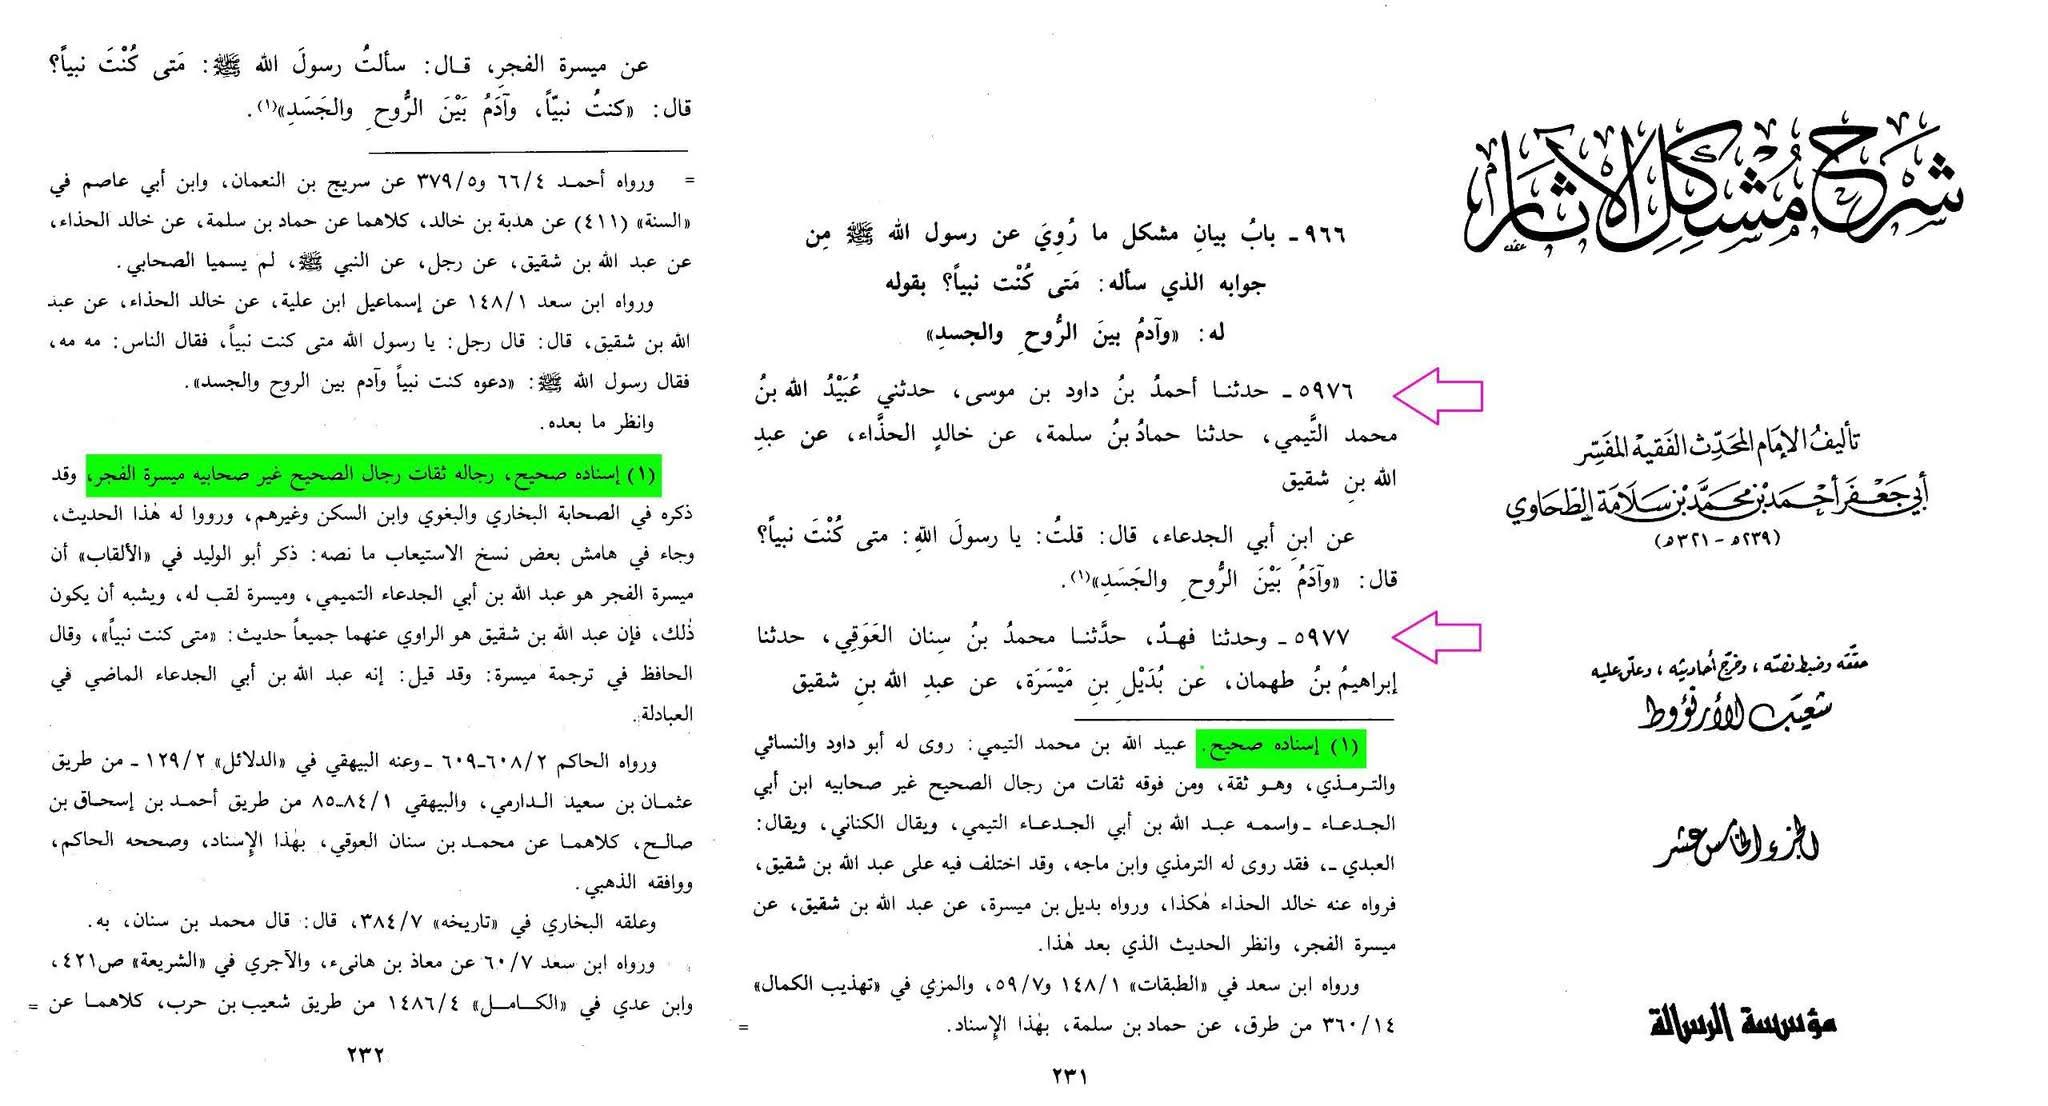 شرح مشكل الآثار
تأليفُ الإمَام المحَدِّث الفَقيه المفَسِّر
أبي جَعْفَر أحْمَد بْن محَمَّد بْن سَلَامَة الطَّحَاوي
(٢٣٩هـ - ٣٢١هـ)
حقّقه وضبط نصّه، وخرّج أحاديثه، وعلّق عليه
شعَيب الأرنؤوط
الجزء الخامس عشر
مؤسسة الرسالة
٩٦٦ـ بابُ بيانِ مشكل ما رُوِيَ عن رسول الله ﷺ مِن
جوابه الذي سأله: مَتى كُنْت نبياً؟ بقوله
له: «وآدمُ بينَ الرُّوحِ والجسدِ»
٥٩٧٦ـ حدثنـا أحمدُ بنُ داود بن موسى، حدثني عُبَيْدُ الله بنُ
محمد التَّيمي، حدثنا حمادُ بنُ سلمة، عن خالدٍ الحذَّاء، عن عبدِ
الله بنِ شقيق
عن ابنِ أبي الجدعاء، قال: قلتُ: يا رسولَ اللهِ: متى كُنْتَ نبياً؟
قال: «وآدَمُ بَيْنَ الرُّوحِ والجَسَدِ»(١).
٥٩٧٧ـ وحدثنا فهدٌ، حدَّثنـا محمدُ بنُ سِنان العَوَقِي، حدثنا
إبراهيمُ بنُ طهمان، عَن بُدَيْلِ بنِ مَيْسَرَة، عن عبدِ الله بنِ شقيق
(١) إسناده صحيح. عبيد الله بن محمد التيمي: روى له أبو داود والنسائي
والتـرمذي، وهـو ثقة، ومن فوقه ثقات من رجال الصحيح غير صحابيه ابن أبي
الجـدعـاء ـ واسمـه عبـد الله بن أبي الجـدعـاء التيمي، ويقال الكناني، ويقال:
العبدي ـ، فقد روى له الترمذي وابن ماجه، وقد اختلف فيه على عبد الله بن شقيق،
فرواه عنه خالد الحذاء هٰكذا، ورواه بديل بن ميسرة، عن عبد الله بن شقيق، عن
ميسرة الفجر، وانظر الحديث الذي بعد هٰذا.
ورواه ابن سعد في «الطبقات» ١٤٨/١ و٥٩/٧، والمزي في «تهذيب الكمال»
٣٦٠/١٤ من طرق، عن حماد بن سلمة، بهٰذا الإسناد. =
٢٣١
عن ميسرة الفجرِ، قـال: سألتُ رسولَ الله ﷺ: مَتى كُنْتَ نبياً؟
قال: «كنتُ نبيّاً، وآدَمُ بَيْنَ الرُّوحِ والجَسَدِ»(١).
= ورواه أحمـد ٦٦/٤ و٣٧٩/٥ عن سريج بن النعمان، وابن أبي عاصم في
«السنة» (٤١١) عن هدبة بن خالد، كلاهما عن حماد بن سلمة، عن خالد الحذاء،
عن عبد الله بن شقيق، عن رجل، عن النبي ﷺ، لم يسميا الصحابي.
ورواه ابن سعد ١٤٨/١ عن إسماعيل ابن علية، عن خالد الحذاء، عن عبد
الله بن شقيق، قال: قال رجل: يا رسول الله متى كنت نبياً، فقال الناس: مه مه،
فقال رسول الله ﷺ: «دعوه كنت نبياً وآدم بين الروح والجسد».
وانظر ما بعده.
(١) إسناده صحيح، رجاله ثقات رجال الصحيح غير صحابيه ميسرة الفجر، وقد
ذكره في الصحابة البخاري والبغوي وابن السكن وغيرهم، ورووا له هٰذا الحديث،
وجاء في هامش بعض نسخ الاستيعاب ما نصه: ذكر أبو الوليد في «الألقاب» أن
ميسرة الفجر هو عبد الله بن أبي الجدعاء التميمي، وميسرة لقب له، ويشبه أن يكون
ذٰلك، فإن عبد الله بن شقيق هو الراوي عنهما جميعاً حديث: «متى كنت نبياً»، وقال
الحافظ في ترجمة ميسرة: وقد قيل: إنه عبد الله بن أبي الجدعاء الماضي في
العبادلة.
ورواه الحاكم ٦٠٨/٢ـ٦٠٩ ـ وعنه البيهقي في «الدلائل» ١٢٩/٢ ـ من طريق
عثمـان بن سعيد الـدارمي، والبيهقي ٨٤/١ـ٨٥ من طريق أحمـد بن إسحـاق بن
صالـح، كلاهمـا عن محمـد بن سنان العوقي، بهٰذا الإسناد، وصححه الحاكم،
ووافقه الذهبي.
وعلقه البخاري في «تاريخه» ٣٨٤/٧، قال: قال محمد بن سنان، به.
ورواه ابن سعد ٦٠/٧ عن معاذ بن هانىء، والآجري في «الشريعة» ص٤٢١،
وابن عدي في «الكـامـل» ١٤٨٦/٤ من طريق شعيب بن حرب، كلاهمـا عن =
٢٣٢